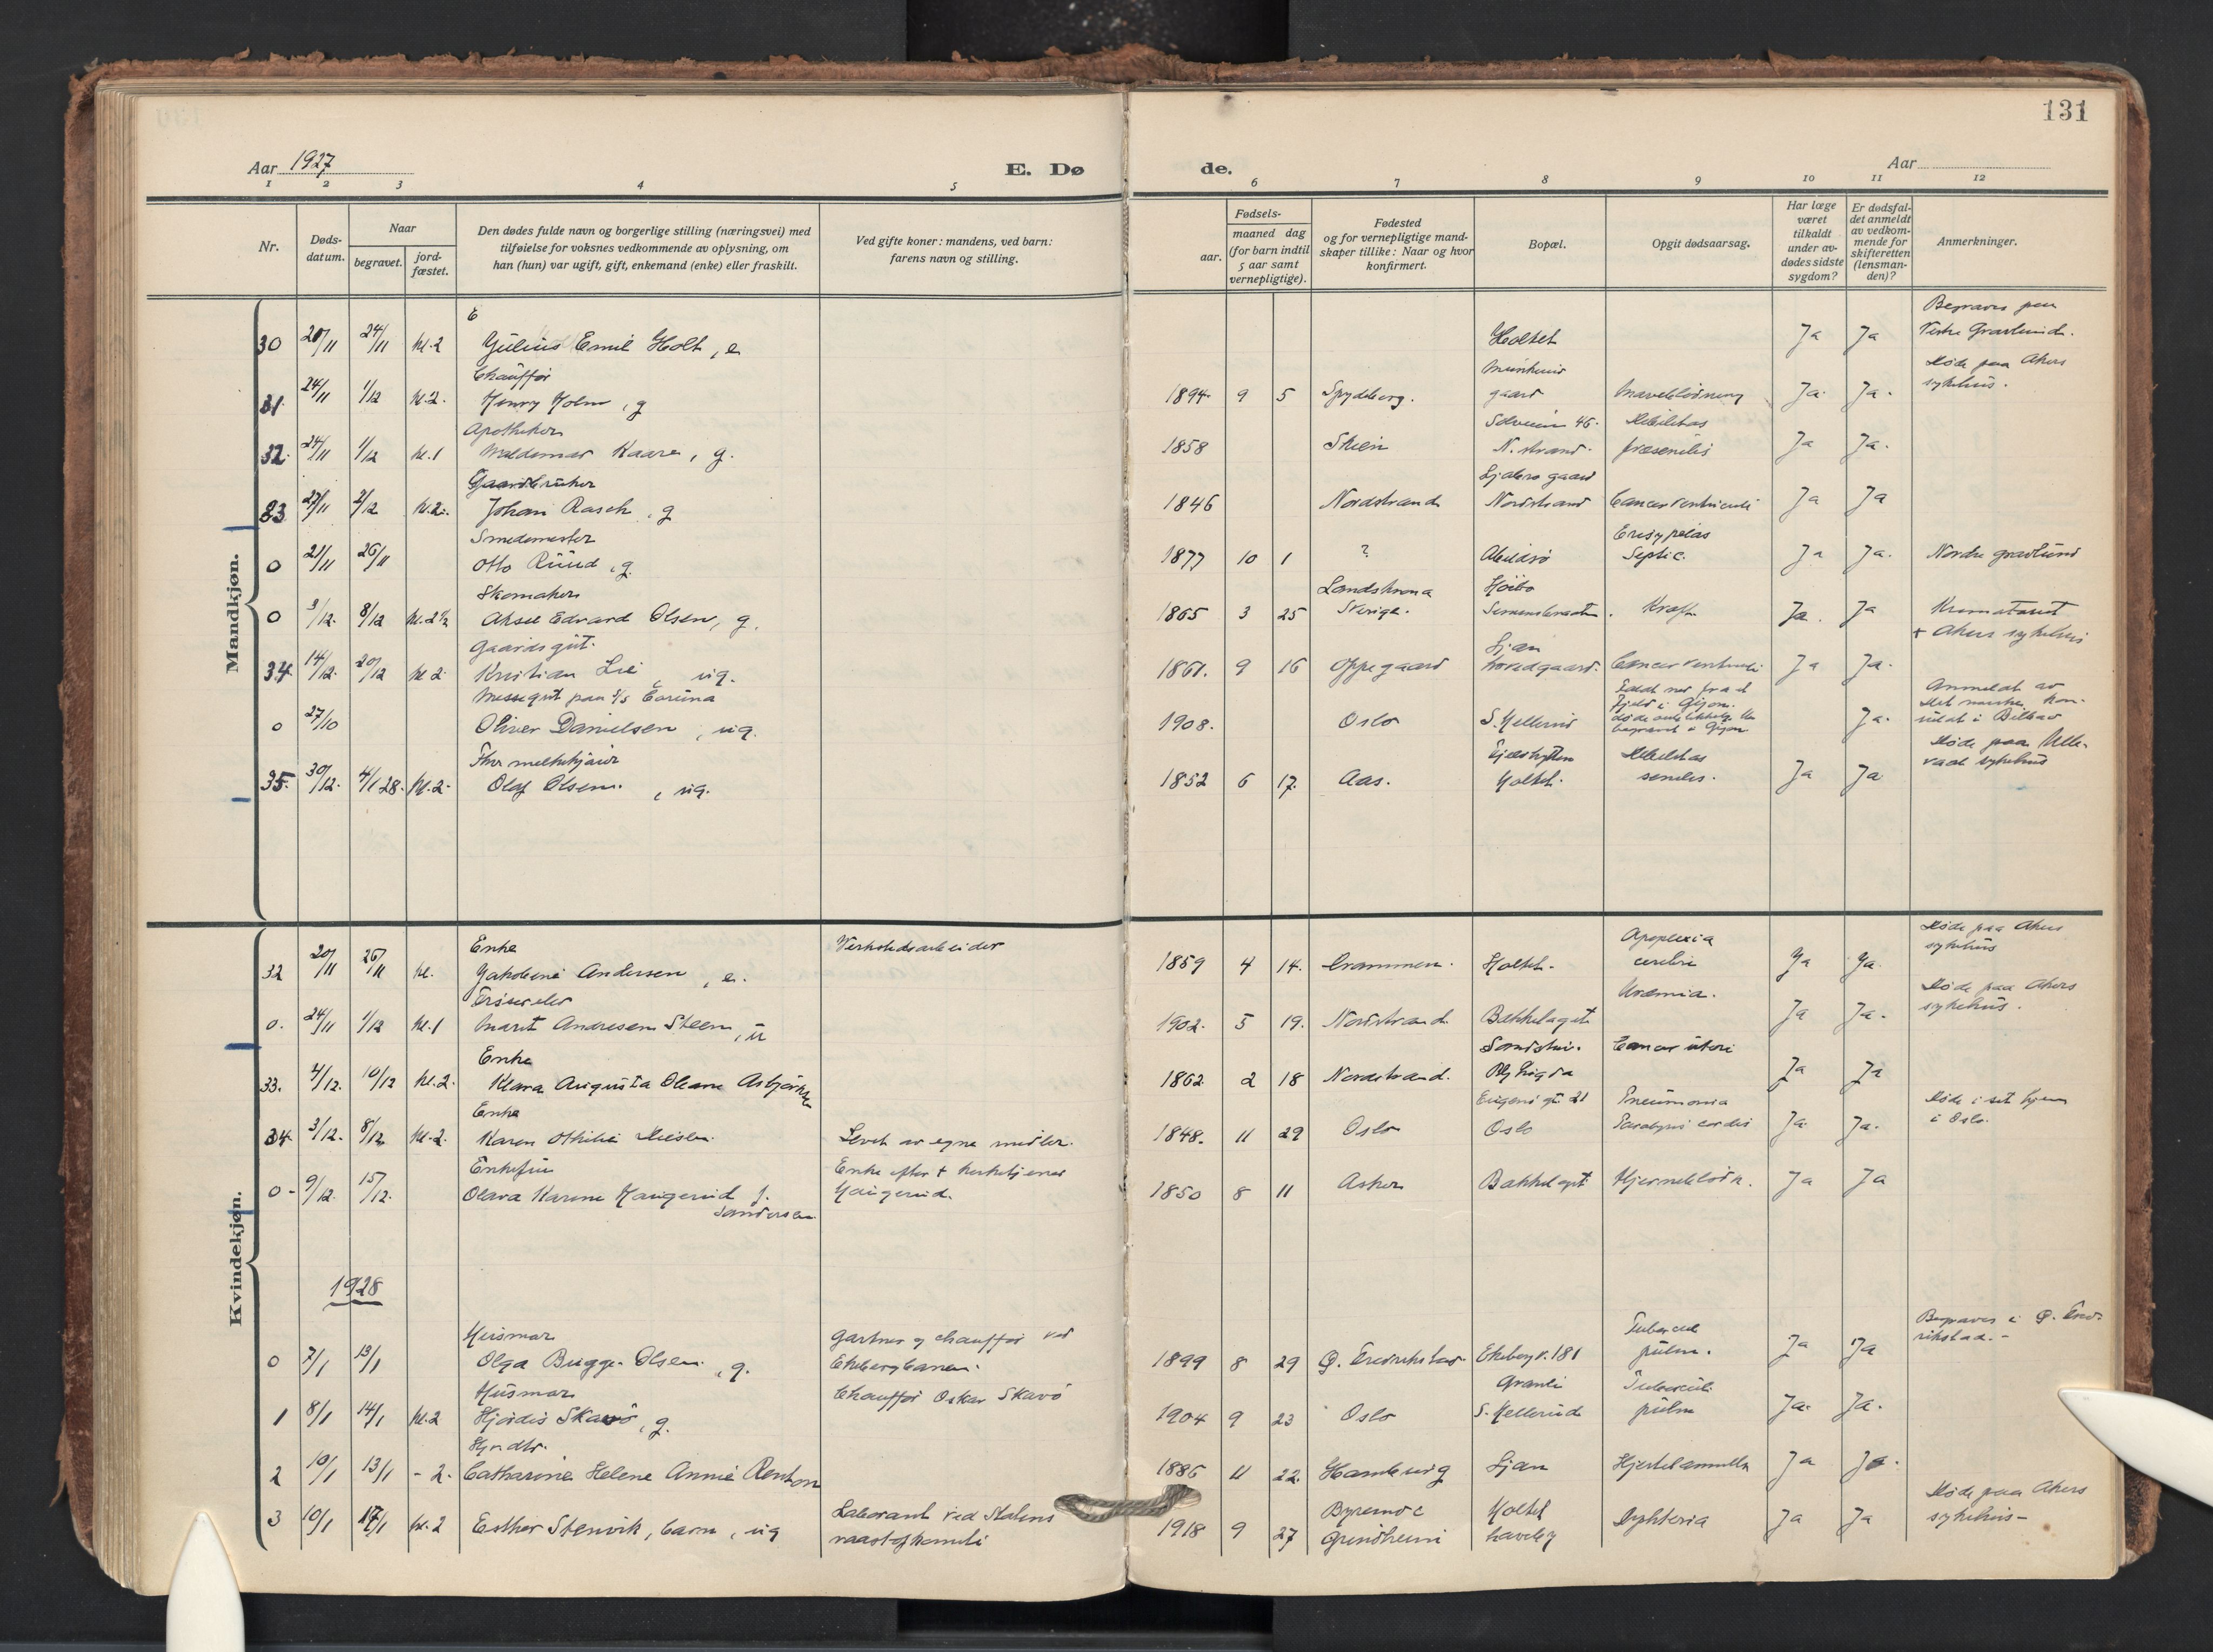 131
Aar 1927
E. Dø
de.
Aar
1 2 3 4 5 6 7 8 9 10 11 12
Nr.
Døds-
datum.
Naar
begravet.
jord-
fæstet.
Den dødes fulde navn og borgerlige stilling (næringsvei) med
tilføielse for voksnes vedkommende av oplysning, om
han (hun) var ugift, gift, enkemand (enke) eller fraskilt.
Ved gifte koner: mandens, ved barn:
farens navn og stilling.
Fødsels-
aar.
maaned dag
(for barn indtil
5 aar samt
vernepligtige).
Fødested
og for vernepligtige mand-
skaper tillike: Naar og hvor
konfirmert.
Bopæl.
Opgit dødsaarsag.
Har læge
været
tilkaldt
under av-
dødes sidste
sygdom?
Er dødsfal-
det anmeldt
av vedkom-
mende for
skifteretten
(lensman-
den)?
Anmerkninger.
Mandkjøn.
E Begraves paa
30 20/11 24/11 kl. 2 Julius Emil Holt, e Holtet Ja Ja Vestre Gravlund.
Chauffør Døde paa Akers
31. 24/11 1/12 kl. 2. Henry Holm, g 1894. 9 5 Spydeberg. gaard Maveblødning Ja. Ja. sykehus.
Apotheker Solveien 46. Debilitas
32. 24/11 1/12 kl. 1 Waldemar Kaare, g. 1858 Skien N. strand. præsenilis Ja Ja.
Gaardbruker Ljabro gaard
33 27/11 2/12 kl. 2. Johan Rasch, g 1846 Nordstrand Nordstrand Cancer ventriculi Ja Ja
Smedemester Erisypelas
0 21/11 26/11 Otto Ruud, g. 1877 10 1 ? Abildsø Septic. Ja Ja. Nordre gravlund
Skomaker Landskrona
0 3/12. 8/12 kl. 2 1/2 Aksel Edvard Olsen, g. 1865 3 25 Sverige. Kræft Ja. Ja Krematoriet
Gaardsgut. Ljan + Akers sykehus
34. 14/12. 20/12 kl 2 Kristian Lie, ug. 1861. 9 16 Oppegaard hovedgaard. Cancer ventriculi Ja Ja.
Messegut paa S/S Coruna Faldt ned fra et Anmeldt av
fjeld i Gijon. det norske kon-
0 27/10 Oliver Danielsen, ug. 1908. Oslo S. Hellerud begravet i Gijon Ja. sulat i Bilbao
Fhv melkekjører Debilitas Døde paa Ulle-
35. 30/12. 4/1 28. kl. 2. Olaf Olsen, ug. 1852 6 17. Aas. Holtet. senilis. Ja Ja vaal sykehus
Kvindekjøn.
Enke Verkstedsarbeider Apoplexia Døde paa Akers
32 20/11 26/11 kl. Jakobine Andersen, e. 1859 4 14. Drammen. Holtet. cerebri Ja Ja. sykehus
Uræmia. Døde paa Akers
0. 24/11 1/12 kl. 1 Marit Andresen Steen, u 1902. 5 19. Nordstrand. Bækkelaget Ja Ja. sykehus.
Enke Cancer uteri
33. 4/12. 10/12 kl. 2. Klara Augusta Oleane Asbjørnsen 1862. 2 18 Nordstrand. Ja Ja
Enke Eugenis gt. 21 Pneumonia Døde i sit hjem
34. 3/12. 8/12 kl. 2. Karen Othilie Nielsen. Levet av egne midler. 1848. 11 29 Oslo Oslo Paralysis cordis Ja Ja. i Oslo.
Enkefru Enke efter +
0 - 9/12. 15/12. Olava Karine Haugerud f. Haugerud. 1850 8 11 Asker Bækkelaget Hjerneblødn. Ja Ja
Sandersen
1928
Husmor Gartner og chauffør ved Tubercul Begraves i G. Fred-
0 7/1 13/1 Olga Bugge Olsen, g. Ekebergbanen. 1899 8 29 G. Fredrikstad Ekebergv. 181 pulm. Ja Ja rikstad. -
Husmor Chauffør Oskar Skavø Granli Tubercul.
1 8/1 14/1 kl. 2 Hjørdis Skavø, g. 1904 9 23 Oslo S. Hellerud pulm Ja. Ja.
2 10/1 13/1 - 2. Catharine Helene Annie Renton 1886 11 22. Hamburg Ljan Hjertelammelse Ja Ja.
Laborant ved Statens Holtet Døde paa Akers
3 10/1 17/1 kl. 2 Esther Stenvik, barn, ug 1918 9 27 Grindheim haveby Dyfteria Ja Ja sykehus -